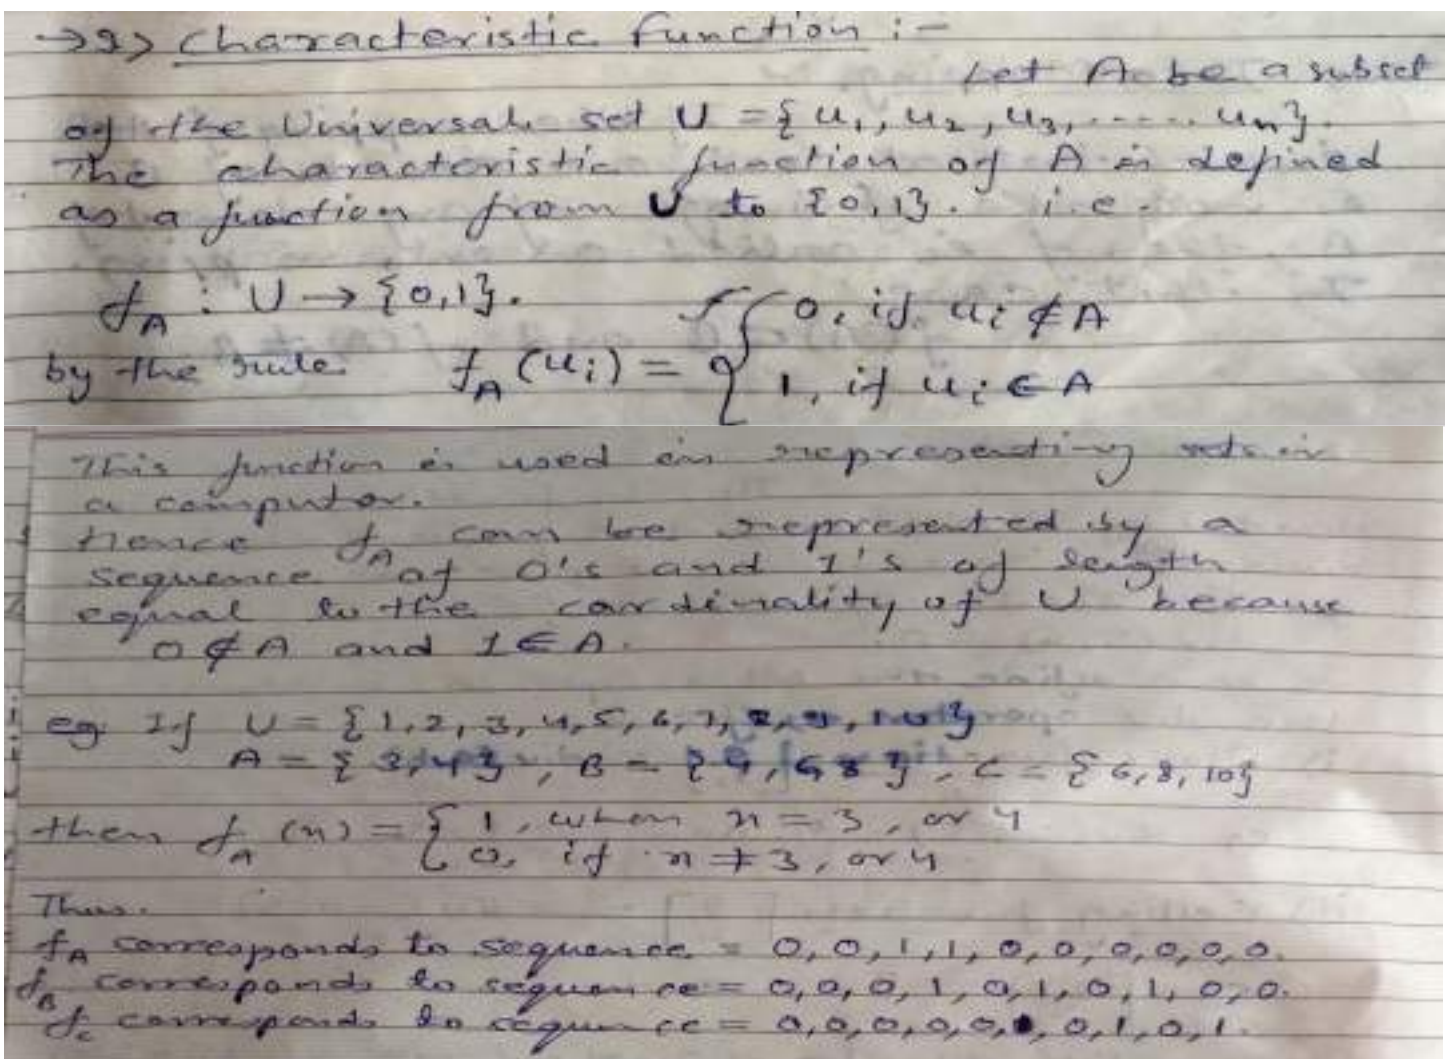 → 2) Characteristic Function :-
Let A be a subset
of the Universal set U = {u₁, u₂, u₃, ...... uₙ}.
The characteristic function of A is defined
as a function from U to {0,1}. i.e.
f_A : U → {0,1}.
0, if uᵢ ∉ A
by the rule f_A (uᵢ) = {
1, if uᵢ ∈ A
This function is used in representing sets in
a computer.
Hence f_A can be represented by a
sequence of 0's and 1's of length
equal to the cardinality of U because
0 ∉ A and 1 ∈ A.
eg. If U = {1,2,3,4,5,6,7,8,9,10}
A = {3,4}, B = {4,6,8}, C = {6,8,10}
then f_A (n) = { 1, when n = 3, or 4
0, if n ≠ 3, or 4
Thus.
f_A corresponds to sequence = 0,0,1,1,0,0,0,0,0,0.
f_B corresponds to sequence = 0,0,0,1,0,1,0,1,0,0.
f_C corresponds to sequence = 0,0,0,0,0, ,0,1,0,1.